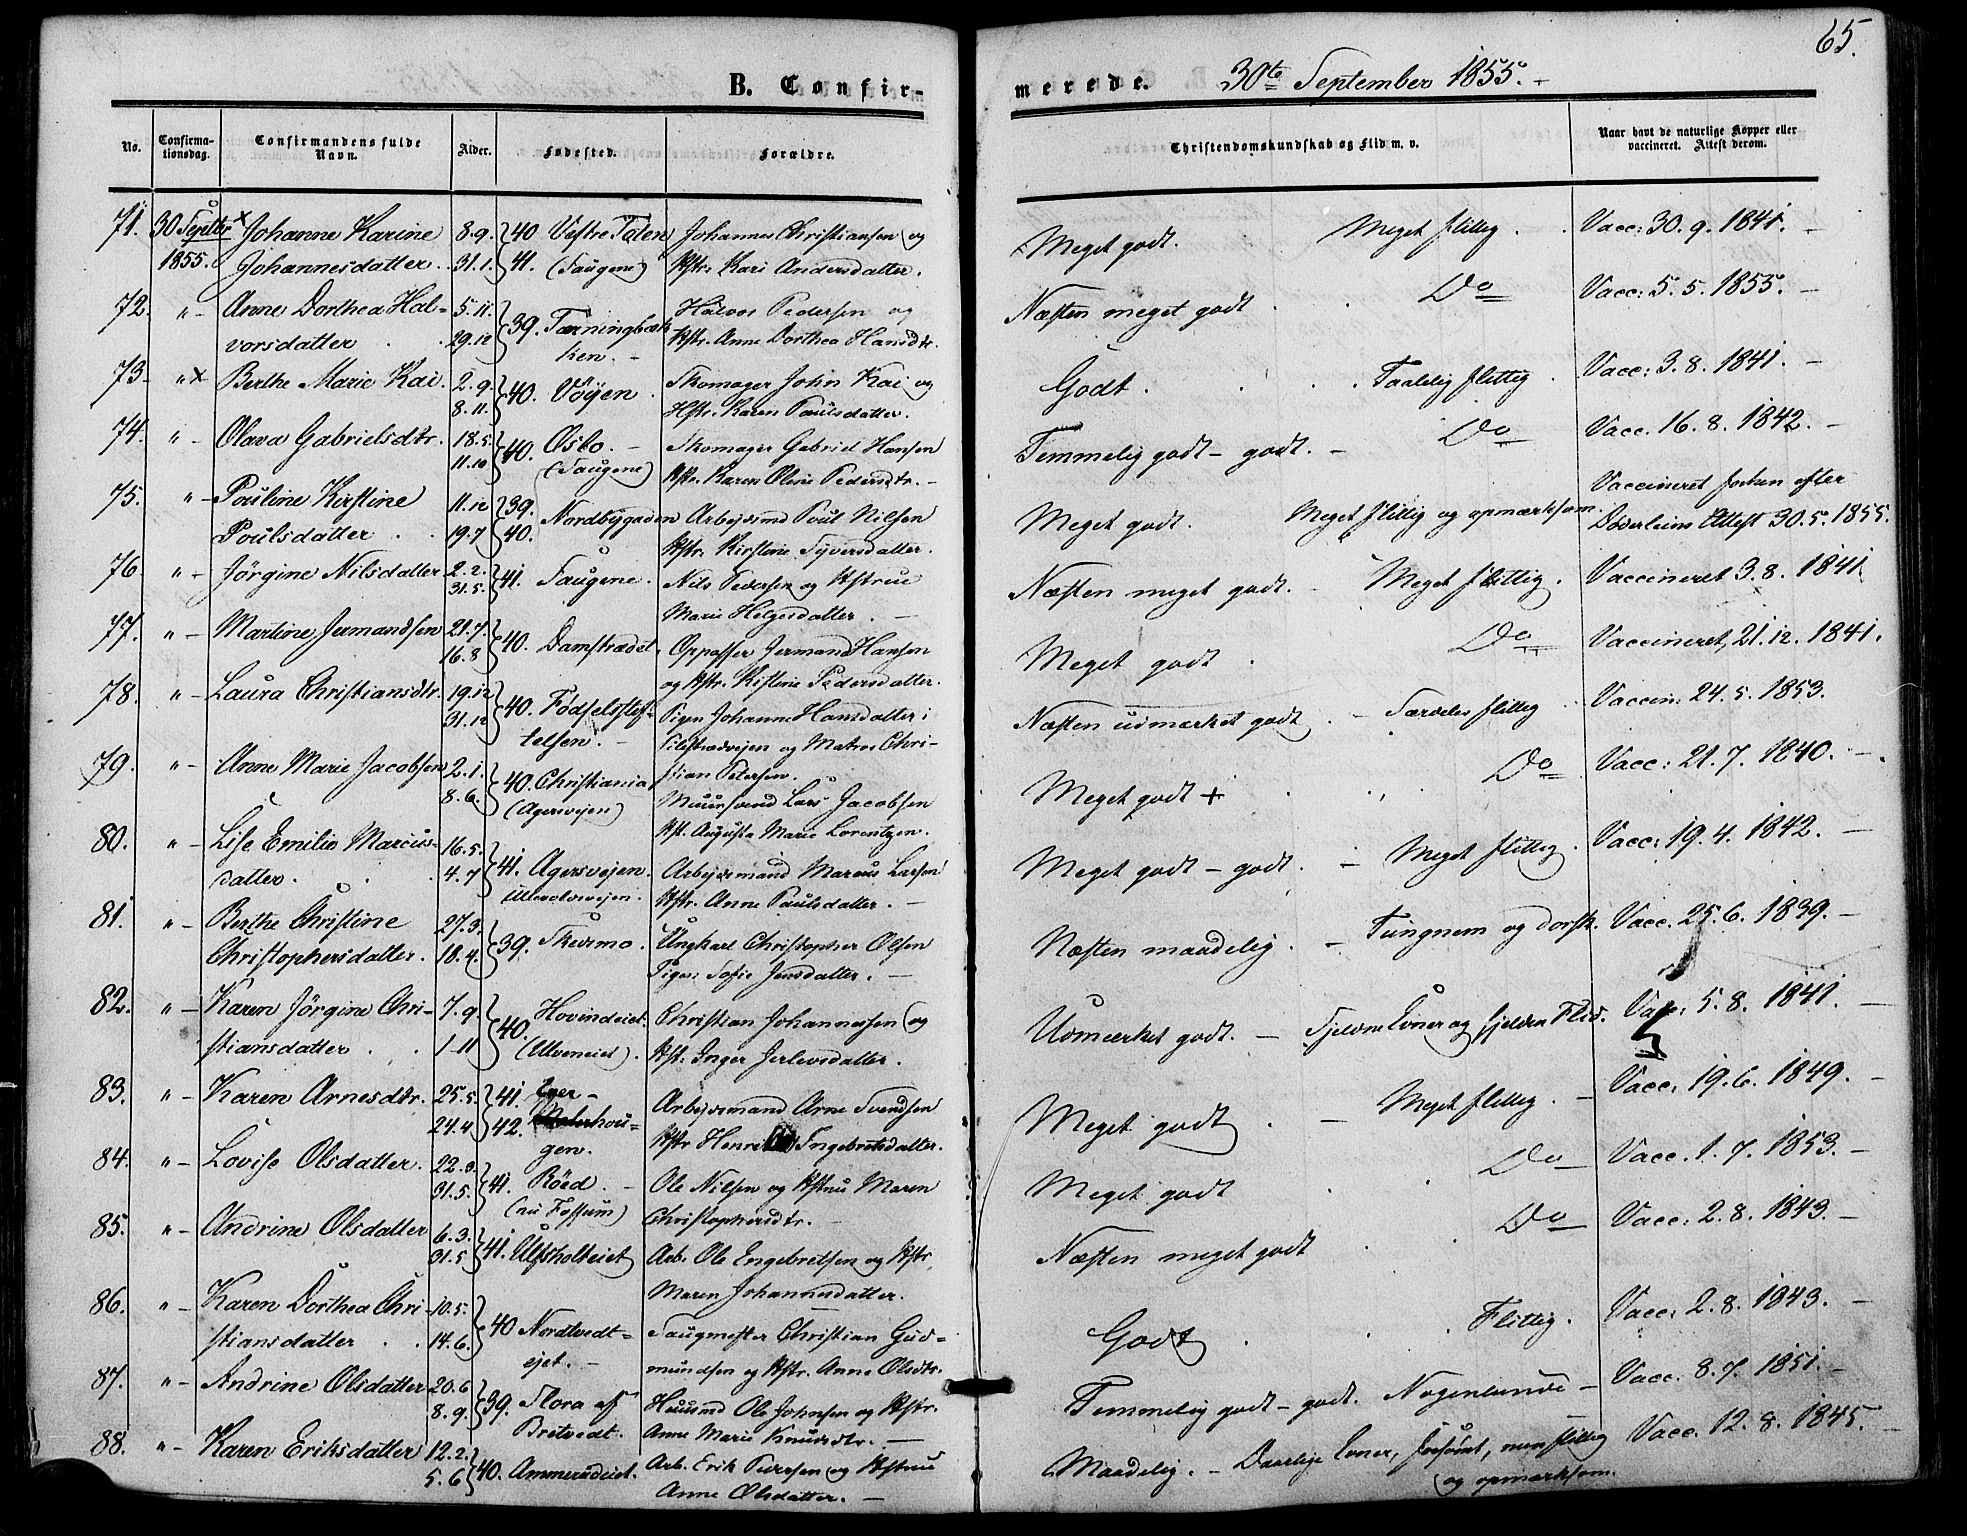 65.
B. Confirmerede. 30te September 1855.
No. Confirmationsdag. Confirmandens fulde Navn. Alder. Fødested. Forældre. Christendomskundskab og Flid m. v. Naar havt de naturlige Kopper eller vaccineret. Attest derom.
71. 30 Septbr x Johanne Karine 8.9. 40. Vestre Toten Johannes Christiansen og Meget godt. Meget flittig. Vacc: 30.9.1841. –
1855. Johannesdatter. 31.1. 41. (Saugene) Hstr: Kari Andersdatter.
72. " – Anne Dorthea Hal- 5.11. 39. Tærningbæk- Halvor Pedersen og Næsten meget godt Do Vacc: 5.5.1855. –
vorsdatter 29.12 ken. – Hstr. Anne Dorthea Hansdtr.
73. " x Berthe Marie Kai 2.9. 40. Vöyen. Skomager John Kai og Godt. Taalelig flittig. Vacc: 3.8.1841. –
8.11. Hstr. Karen Paulsdatter.
74. " – Olava Gabrielsdtr. 18.5. 40. Oslo. – Skomager Gabriel Hansen Temmelig godt – godt. – Do Vacc. 16.8.1842. –
11.10 (Saugene) Hstr. Karen Oline Pedersdtr. –
75. " – Pouline Kirstine 11.12 39. Nordbygaden Arbejdsmd Poul Nilsen Meget godt. Meget flittig og opmærksom. Vaccineret efter
Poulsdatter. 19.7 40. Hstr. Kirstine Syversdatter. Attest 30.5.1855.
76. " – Jörgine Nilsdatter 2.2. 41. Saugene. Nils Pedersen og Hstrue Næsten meget godt. – Meget flittig. Vaccineret 3.8.1841
31.5. Marie Helgesdatter. –
77. " – Martine Jermandsen 21.7. 40. Damstrædet. Oppasser Jermand Hansen Meget godt. Do Vaccineret 21.12.1841.
16.8 og Hstr. Kistine Pedersdatter.
78. " – Laura Christiansdtr. 19.12 40. Födselsstif- Pigen Johanne Hansdatter i Næsten udmærket godt. – Særdeles flittig Vaccin: 24.5.1853.
31.12 telsen. – Pilestrædvejen og Matros Chri-
stian Petersen.
79. " – Anne Marie Jacobsen 2.1. 40. Christiania Muursvend Lars Jacobsen Meget godt + Do Vacc: 21.7.1840. –
8.6. (Agersvejen) Hst. Augusta Marie Lorentzen.
80. " – Lise Emilie Marcus- 16.5. 41. Agersvejen. Arbejdsmand Marcus Larsen Meget godt – godt. – Meget flittig. Vacc: 19.4.1842. –
datter. 4.7 Ullevoldsvejen. Hstr. Anne Paulsdatter. –
81. " – Berthe Christine 27.3. 39. Ungkarl Christopher Olsen Næsten maadelig. – Tungnem og dorsk. Vacc. 25.6.1839. –
Christophersdatter. 18.4. Pigen Sofie Jensdatter. –
82. " – Karen Jörgine Chri- 7.9. 40. Hovindeiet. Christian Johannessen og Udmærket godt. – Sjeldne Evner og sjelden Flid. Vacc: 5.8.1841. –
stiansdatter. 1–11 (Ulveneiet). Hst: Inger Jerlevsdatter.
83. " – Karen Arnesdtr. 25.5. 41. Eger- Arbejdsmand Arne Svendsen Meget godt. – Meget flittig. – Vacc. 19.6.1849. –
24.4 42. hou- Hstr Ingebretsdatter.
gen.
84. " – Lovise Olsdatter. 22.3. 41. Röed. – Ole Nilsen og Hstrue Maren Meget godt Do Vacc. 1.7.1853. –
31.5. (nu Fossum) Christophersdtr. –
85. " – Andrine Olsdatter 6.3. 41. Ulfsholteiet Arb. Ole Engebretsen og Hstr. Næsten meget godt Do Vacc: 2.8.1843. –
31.5 Maren Johannesdatter.
86. " – Karen Dorthea Chri- 10.5. 40 Nordtvedt- Saugmester Christian Gud- Godt Flittig. Vacc: 2.8.1843. –
stiansdatter. 14.6. ejet. – mundsen og Hstr. Anne Olsdtr.
87. " – Andrine Olsdatter 20.6 39. Flora af Huusmd Ole Johnsen og Hstr. Temmelig godt – godt. Nogenlunde – Vacc. 8.7.1851. –
8.9. Bretvedt. Anne Marie Knudsdtr. –
88. " – Karen Eriksdatter 12.2. 40. Ammerudeiet. Arb. Erik Pedersen og Hstrue Maadelig. – Daarlige Evner, forsömt, men flittig Vacc. 12.8.1845.
5.6 Anne Olsdatter. – og opmærksom.